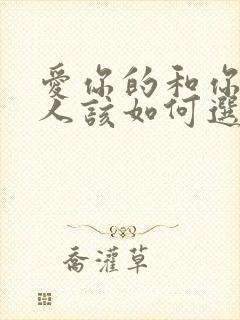 愛你的和你
人該如何選
喬灌草